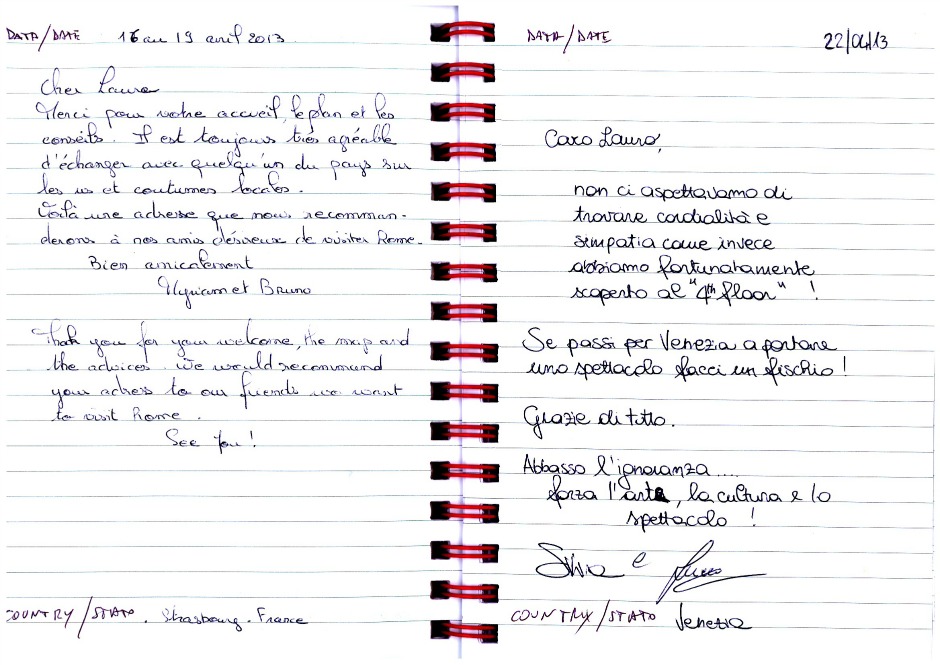 DATA/DATE 16 au 19 avril 2013
Cher Lauro
Merci pour votre accueil, le plan et les
conseils. Il est toujours très agréable
d'échanger avec quelqu'un du pays sur
les us et coutumes locales.
Voilà une adresse que nous recomman-
derons à nos amis désireux de visiter Rome.
Bien amicalement
Myriam et Bruno
Thank you for your welcome, the map and
the advices. We would recommend
your adress to our friends we want
to visit Rome.
See you!
COUNTRY/STATO. Strasbourg. France
DATA/DATE 22/04/13
Caro Lauro,
non ci aspettavamo di
trovare cordialità e
simpatia come invece
abbiamo fortunatamente
scoperto al "4th floor" !
Se passi per Venezia a portare
uno spettacolo facci un fischio!
Grazie di tutto.
Abbasso l'ignoranza....
forza l'arte, la cultura e lo
spettacolo !
Silvia e
COUNTRY/STATO Venezia